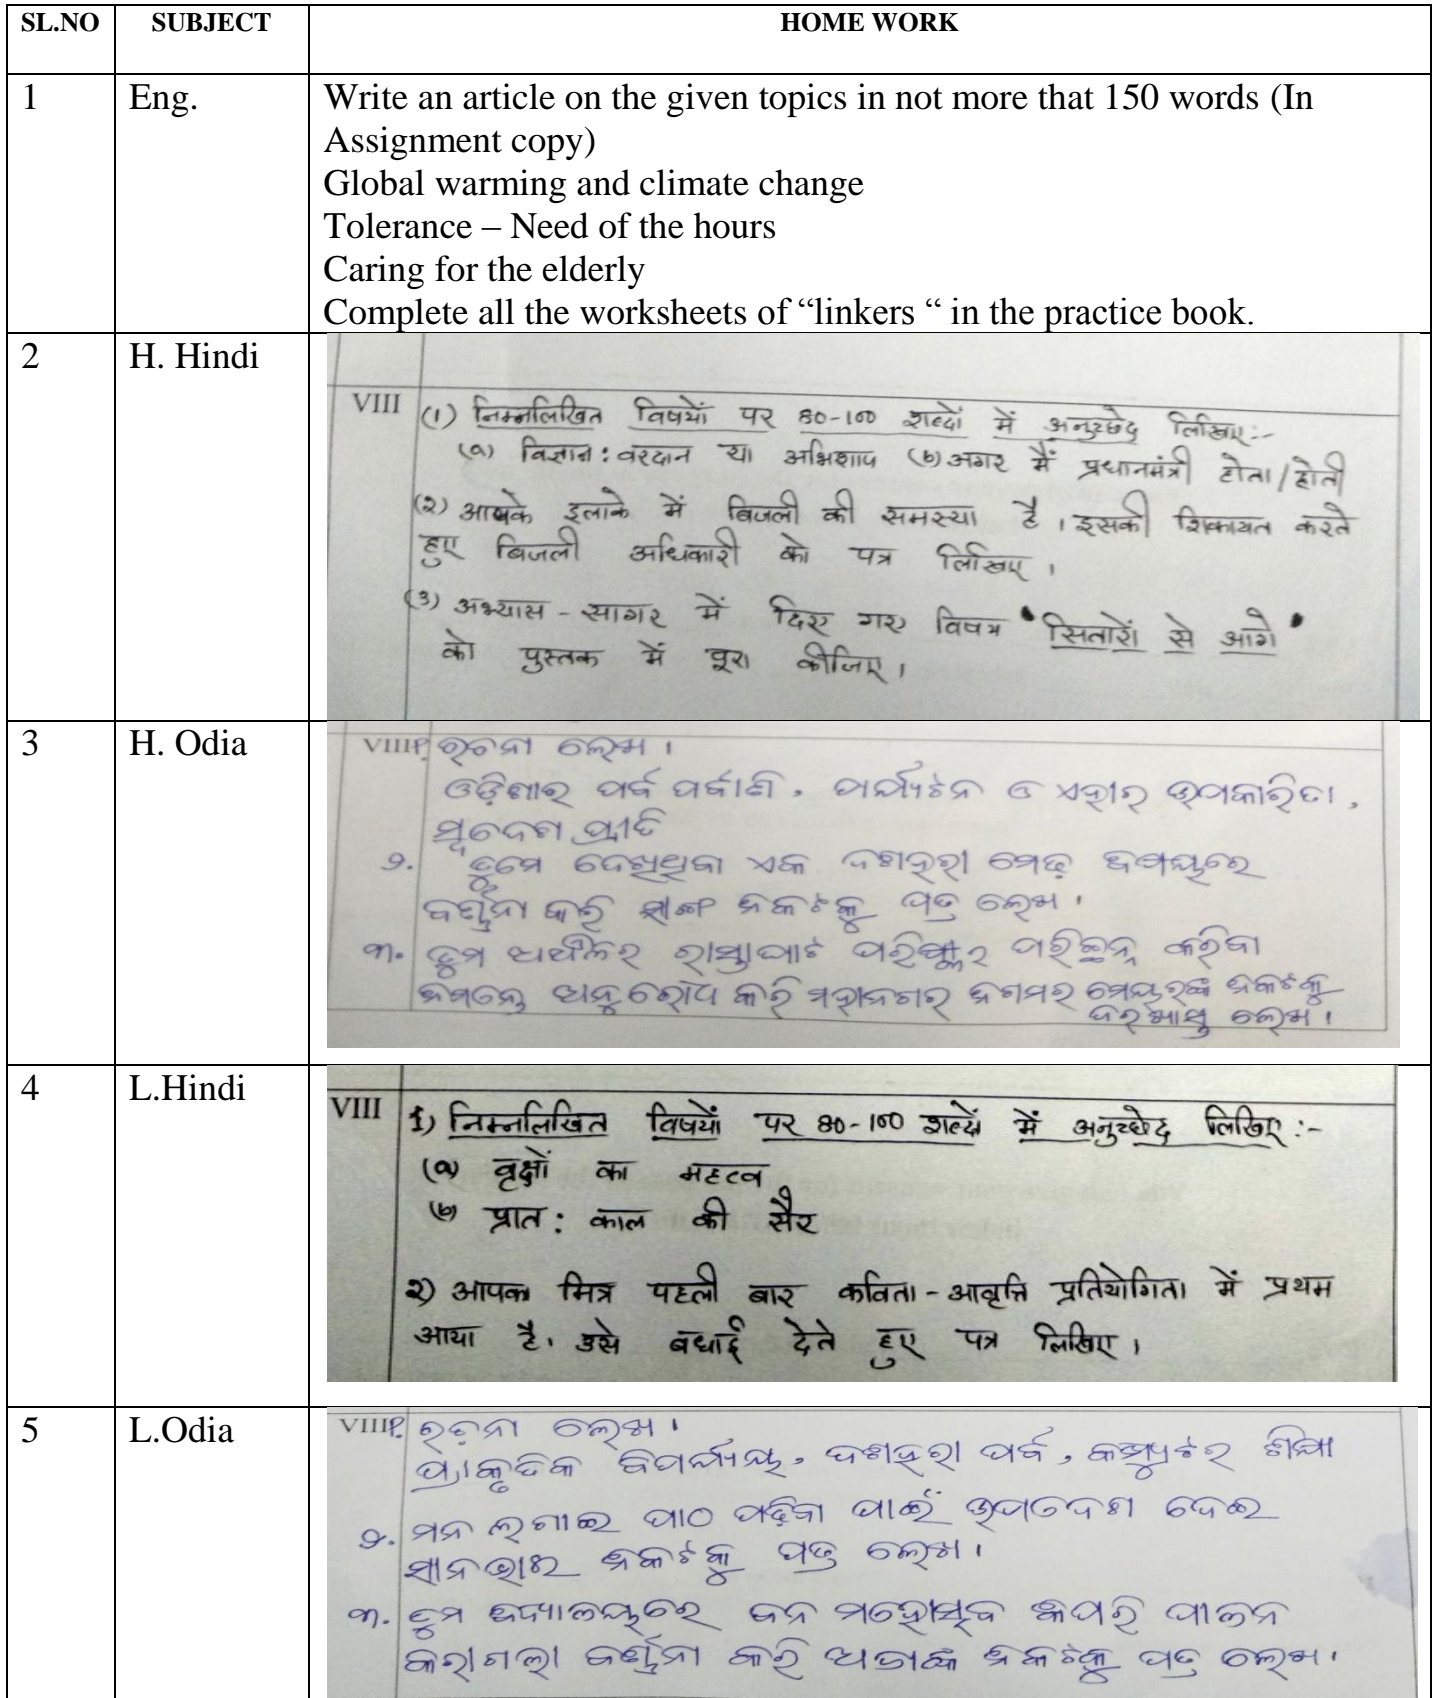 SL.NO SUBJECT HOME WORK
1 Eng. Write an article on the given topics in not more that 150 words (In
Assignment copy)
Global warming and climate change
Tolerance – Need of the hours
Caring for the elderly
Complete all the worksheets of “linkers “ in the practice book.
2 H. Hindi
VIII (1) निम्नलिखित विषयों पर 80-100 शब्दों में अनुच्छेद लिखिए:-
(a) विज्ञान : वरदान या अभिशाप (b) अगर मैं प्रधानमंत्री होता/होती
(२) आपके इलाके में बिजली की समस्या है । इसकी शिकायत करते
हुए बिजली अधिकारी को पत्र लिखिए ।
(३) अभ्यास - सागर में दिए गए विषय ' सितारों से आगे '
को पुस्तक में पूरा कीजिए ।
3 H. Odia
VIII ୧. ରଚନା ଲେଖ ।
ଓଡ଼ିଶାର ପର୍ବ ପର୍ବାଣି, ପର୍ଯ୍ୟଟନ ଓ ଏହାର ଉପକାରିତା,
ସ୍ୱଦେଶ ପ୍ରୀତି
୨. ତୁମେ ଦେଖିଥିବା ଏକ ଦଶହରା ମେଢ଼ ବିଷୟରେ
ବର୍ଣ୍ଣନା କରି ସାଙ୍ଗ ନିକଟକୁ ପତ୍ର ଲେଖ ।
୩. ତୁମ ଅଞ୍ଚଳର ରାସ୍ତାଘାଟ ପରିଷ୍କାର ପରିଚ୍ଛନ୍ନ କରିବା
ନିମନ୍ତେ ଅନୁରୋଧ କରି ମହାନଗର ନିଗମର ମେୟରଙ୍କ ନିକଟକୁ
ଦରଖାସ୍ତ ଲେଖ ।
4 L.Hindi
VIII 1) निम्नलिखित विषयों पर 80-100 शब्दों में अनुच्छेद लिखिए :-
(a) वृक्षों का महत्व
(b) प्रात: काल की सैर
२) आपका मित्र पहली बार कविता - आवृत्ति प्रतियोगिता में प्रथम
आया है, उसे बधाई देते हुए पत्र लिखिए ।
5 L.Odia
VIII ୧. ରଚନା ଲେଖ ।
ପ୍ରାକୃତିକ ବିପର୍ଯ୍ୟୟ, ଦଶହରା ପର୍ବ, କମ୍ପ୍ୟୁଟର ଶିକ୍ଷା
୨. ମନ ଲଗାଇ ପାଠ ପଢ଼ିବା ପାଇଁ ଉପଦେଶ ଦେଇ
ସାନଭାଇ ନିକଟକୁ ପତ୍ର ଲେଖ ।
୩. ତୁମ ବିଦ୍ୟାଳୟରେ ବନ ମହୋତ୍ସବ କିପରି ପାଳନ
କରାଗଲା ବର୍ଣ୍ଣନା କରି ଅଜାଙ୍କ ନିକଟକୁ ପତ୍ର ଲେଖ ।